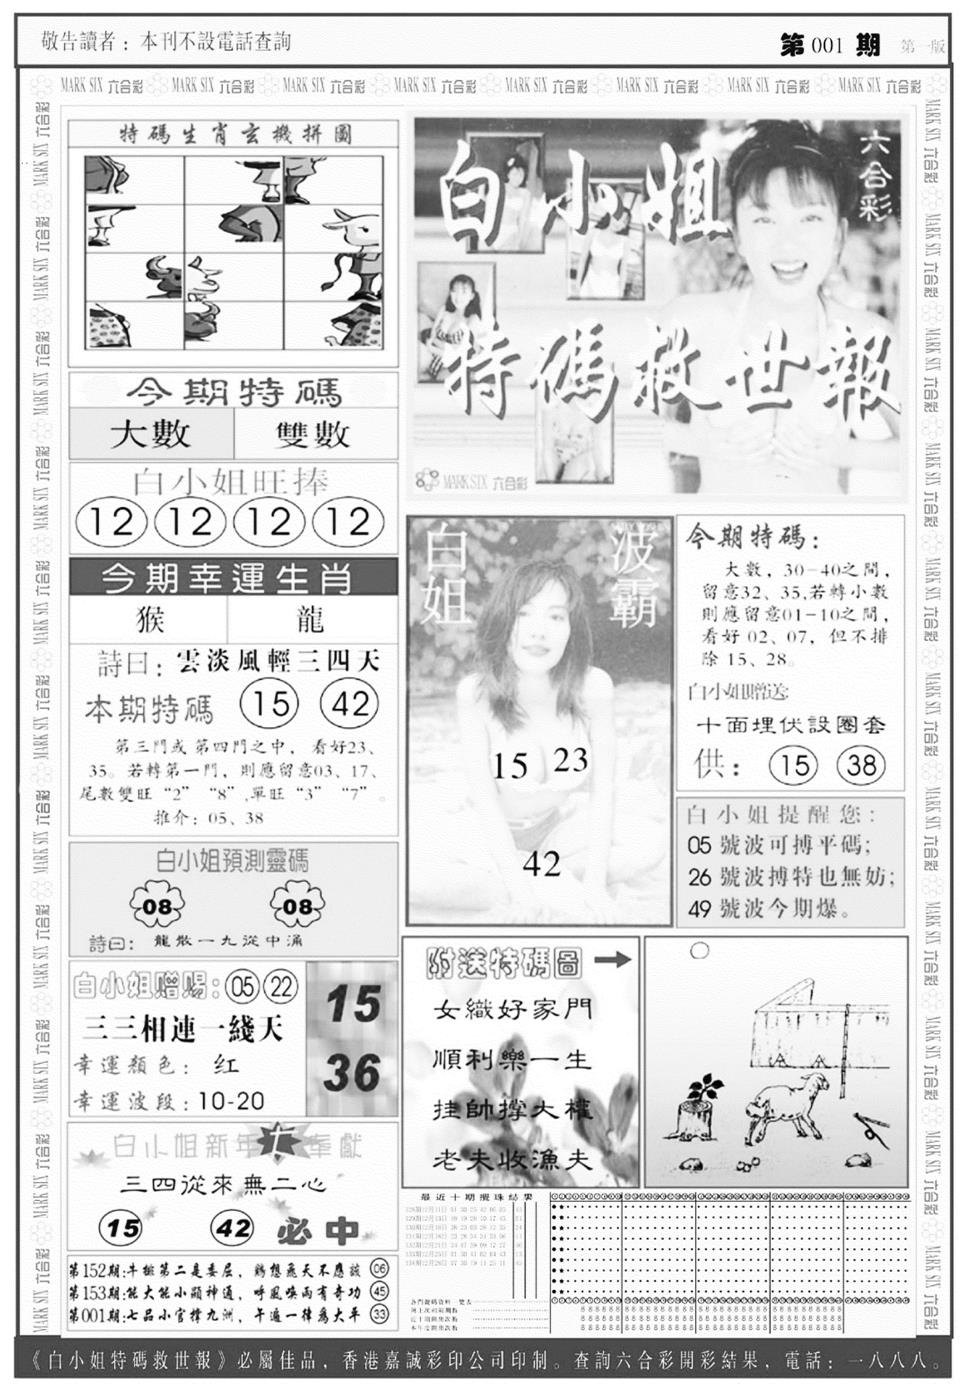 敬告讀者：本刊不設電話查詢
第 001 期 第一版
MARK SIX 六合彩
特碼生肖玄機拼圖
六合彩
白小姐
特碼救世報
MARK SIX 六合彩
今期特碼
大數 雙數
白小姐旺捧
12 12 12 12
今期幸運生肖
猴 龍
詩曰：雲淡風輕三四天
本期特碼 15 42
第三門或第四門之中，看好23、
35。若轉第一門，則應留意03、17、
尾數雙旺“2”“8”,單旺“3”“7”。
推介：05、38
白小姐預測靈碼
08 08
詩曰：龍散一九從中涌
白小姐赠赐：05 22
三三相連一綫天
幸運顏色：红
幸運波段：10-20
15
36
白小姐新年奉獻
三四從來無二心
15 42 必中
第152期:牛排第二是委屈，鷄想飛天不應該 06
第153期:能大能小顯神通，呼風喚雨有奇功 45
第001期:七品小官擇九洲，午過一律為大平 33
白姐
波霸
15 23
42
今期特碼：
大數，30-40之間，
留意32、35,若轉小數
則應留意01-10之間，
看好 02、07，但不排
除 15、28。
白小姐贈送:
十面埋伏設圈套
供：15 38
白小姐提醒您：
05 號波可搏平碼；
26 號波搏特也無妨；
49 號波今期爆。
附送特碼圖
女織好家門
順利樂一生
挂帥撑大權
老夫收漁夫
最近十期攪珠結果
《白小姐特碼救世報》必屬佳品，香港嘉誠彩印公司印制。查詢六合彩開彩結果，電話：一八八八。